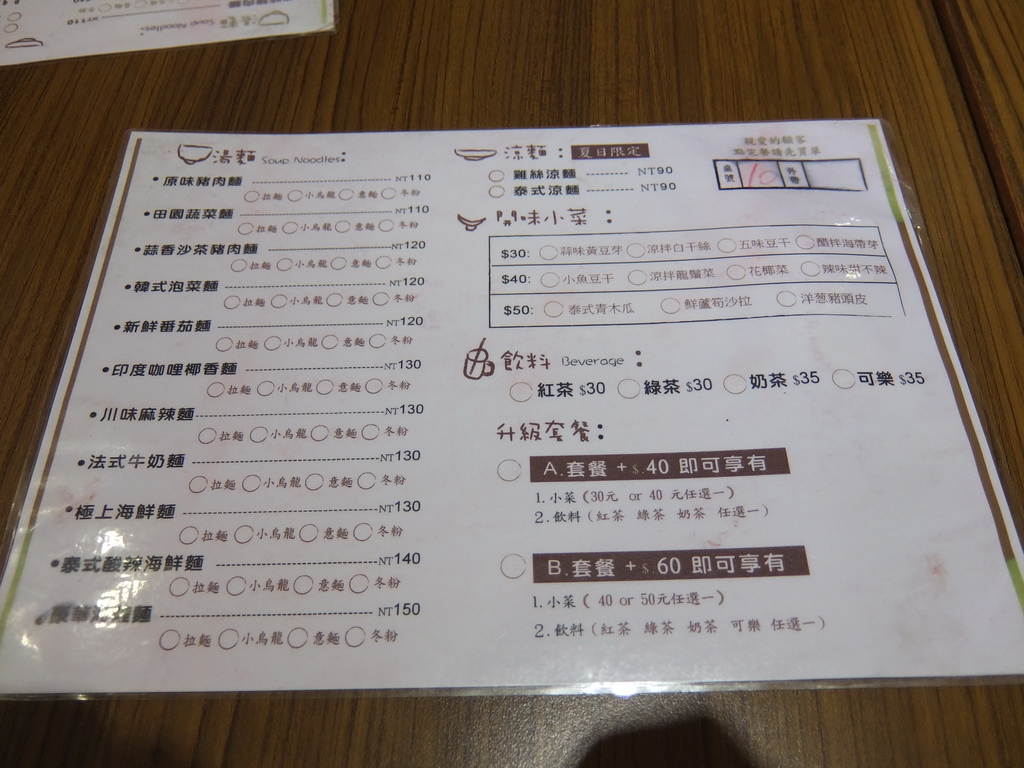 湯麵 Soup Noodles:
NT110
湯麵 Soup Noodles:
•原味豬肉麵 NT110
拉麵 小烏龍 意麵 冬粉
•田園蔬菜麵 NT110
拉麵 小烏龍 意麵 冬粉
•蒜香沙茶豬肉麵 NT120
拉麵 小烏龍 意麵 冬粉
•韓式泡菜麵 NT120
拉麵 小烏龍 意麵 冬粉
•新鮮番茄麵 NT120
拉麵 小烏龍 意麵 冬粉
•印度咖哩椰香麵 NT130
拉麵 小烏龍 意麵 冬粉
•川味麻辣麵 NT130
拉麵 小烏龍 意麵 冬粉
•法式牛奶麵 NT130
拉麵 小烏龍 意麵 冬粉
•極上海鮮麵 NT130
拉麵 小烏龍 意麵 冬粉
•泰式酸辣海鮮麵 NT140
拉麵 小烏龍 意麵 冬粉
•豪華海鮮麵 NT150
拉麵 小烏龍 意麵 冬粉
涼麵：夏日限定
雞絲涼麵 NT90
泰式涼麵 NT90
親愛的顧客
點完餐請先買單
桌號 10 外帶
開味小菜：
$30: 蒜味黃豆芽 涼拌白干絲 五味豆干 醋拌海帶芽
$40: 小魚豆干 涼拌龍鬚菜 花椰菜 辣味甜不辣
$50: 泰式青木瓜 鮮蘆筍沙拉 洋蔥豬頭皮
飲料 Beverage：
紅茶 $30 綠茶 $30 奶茶 $35 可樂 $35
升級套餐：
A.套餐 + $.40 即可享有
1.小菜（30元 or 40 元任選一）
2.飲料（紅茶 綠茶 奶茶 任選一）
B.套餐 + $.60 即可享有
1.小菜（ 40 or 50元任選一）
2.飲料（紅茶 綠茶 奶茶 可樂 任選一）